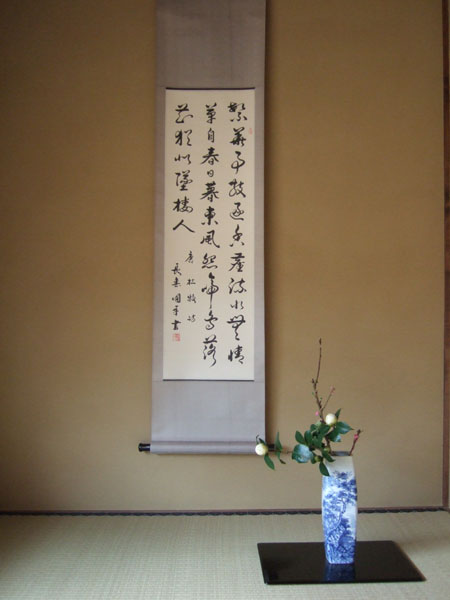 繁華事散逐香塵流水無情
草自春日暮東風怨啼鳥落
花猶似墜樓人
唐杜牧詩